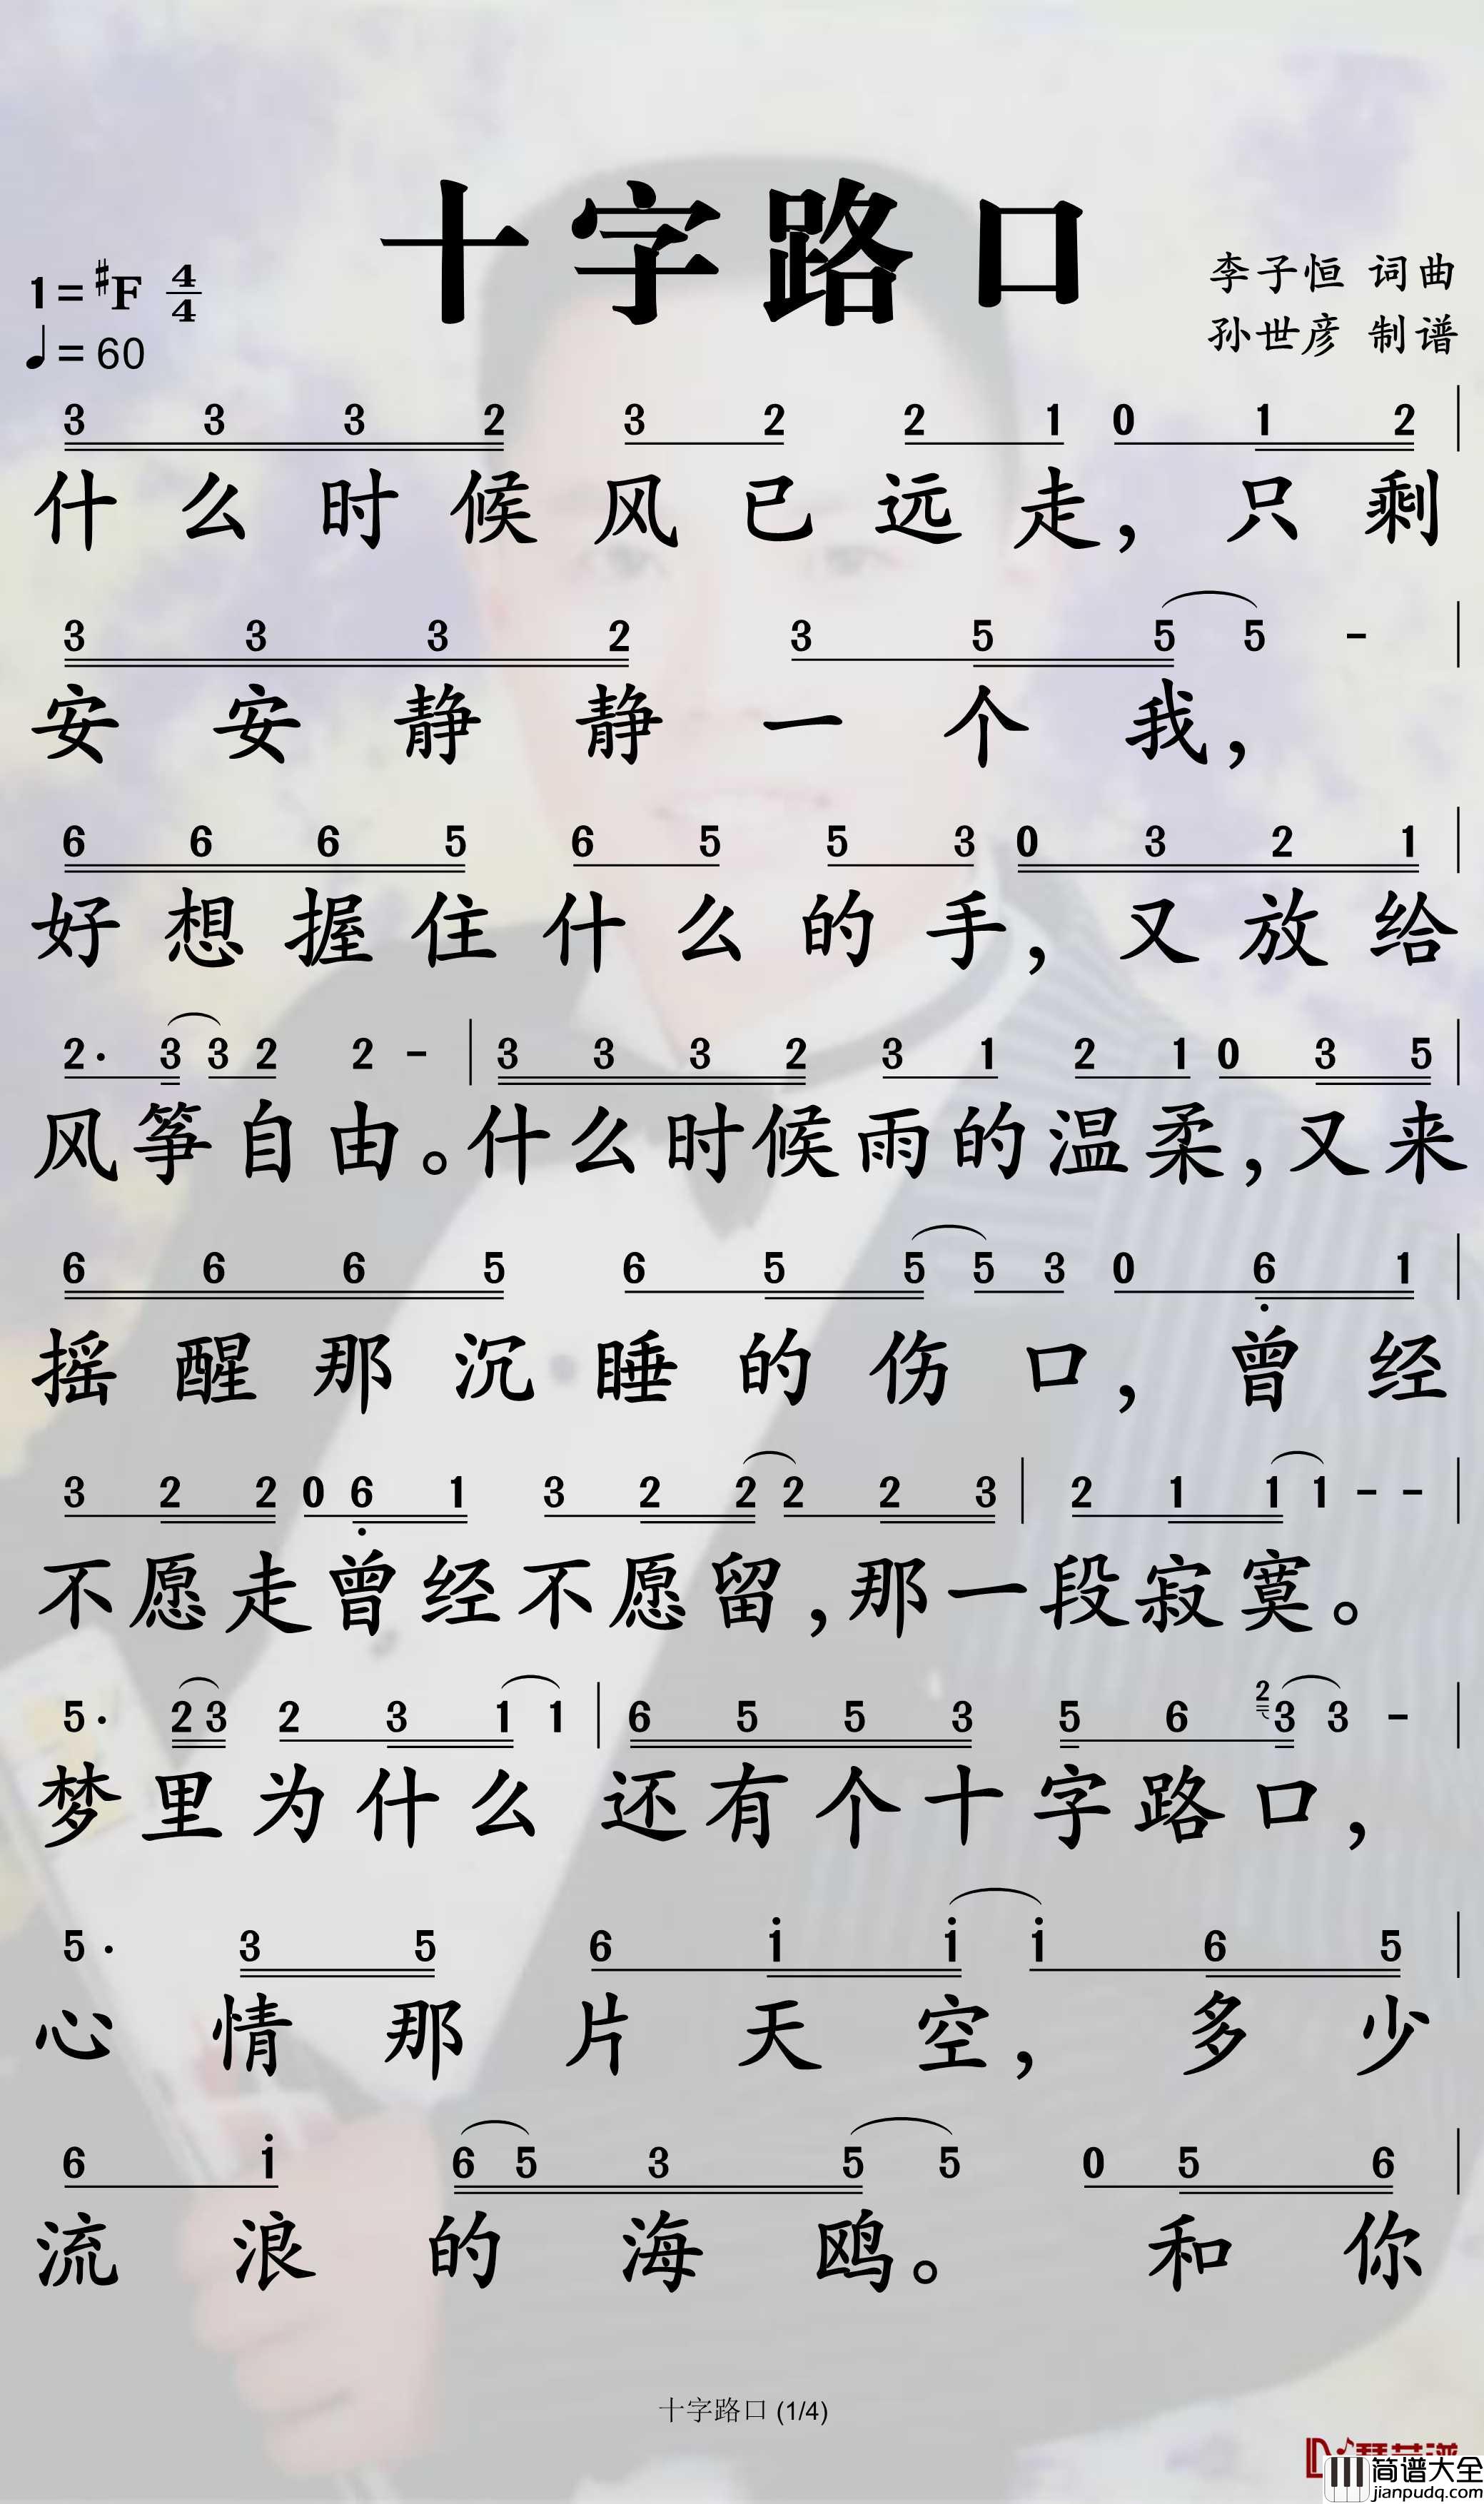 十字路口
1=♯F 4/4
♩=60
李子恒 词曲
孙世彦 制谱
3 3 3 2 3 2 2 1 0 1 2 |
什么时候风已远走，只剩
3 3 3 2 3 5 5 5 - |
安安静静一个我，
6 6 6 5 6 5 5 3 0 3 2 1 |
好想握住什么的手，又放给
2· 3 3 2 2 - | 3 3 3 2 3 1 2 1 0 3 5 |
风筝自由。什么时候雨的温柔，又来
6 6 6 5 6 5 5 5 3 0 6̣ 1 |
摇醒那沉睡的伤口，曾经
3 2 2 0 6̣ 1 3 2 2 2 2 3 | 2 1 1 1 - - |
不愿走曾经不愿留，那一段寂寞。
5· 2 3 2 3 1 1 | 6 5 5 3 5 6 2 3 3 - |
梦里为什么还有个十字路口，
5· 3 5 6 1̇ 1̇ 1̇ 6 5 |
心情那片天空，多少
6 1̇ 6 5 3 5 5 0 5 6 |
流浪的海鸥。和你
十字路口 (1/4)
简谱大全
jianpudq.com